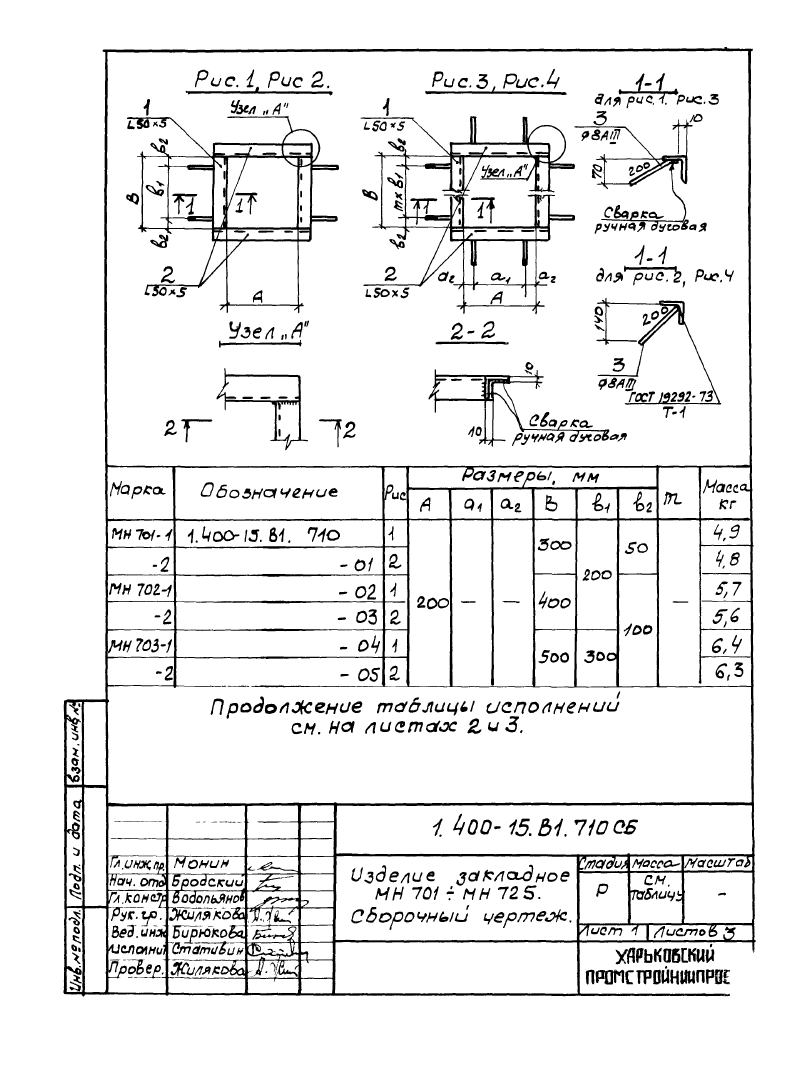 Рис.1, Рис 2.
1
L50×5
Узел „А"
в2
В
в1
в2
1
1
2
L50×5
А
Рис.3, Рис.4
1
L50×5
Узел „А"
в2
В
m×в1
в2
1
1
2
L50×5
а2
а1
а2
А
1-1
для рис.1. Рис.3
3
Ф8АIII
10
70
200
Сварка
ручная дуговая
1-1
для рис.2, Рис.4
140
200
3
Ф8АIII
ГОСТ 19292-73
Т-1
Узел „А"
2
2
2-2
10
10
Сварка
ручная дуговая
Марка Обозначение Рис Размеры, мм m Масса кг
А а1 а2 В в1 в2
МН 701-1 1.400-15.В1. 710 1 200 — — 300 200 50 — 4,9
-2 -01 2 4,8
МН 702-1 -02 1 400 100 5,7
-2 -03 2 5,6
МН 703-1 -04 1 500 300 6,4
-2 -05 2 6,3
Продолжение таблицы исполнений
см. на листах 2 и 3.
Взам. инв.№
Подп. и дата
Инв.№ подл.
1.400-15.В1.710СБ
Гл.инж.пр. Монин
Нач. отд Бродский
Гл.констр Водопьянов
Рук. гр. Жилякова
Вед.инж Бирюкова
исполнит Стативин
Провер. Жилякова
Изделие закладное
МН 701 ÷ МН 725.
Сборочный чертеж.
Стадия Масса Масштаб
Р см. таблицу -
Лист 1 Листов 3
ХАРЬКОВСКИЙ
ПРОМСТРОЙНИИПРОЕ